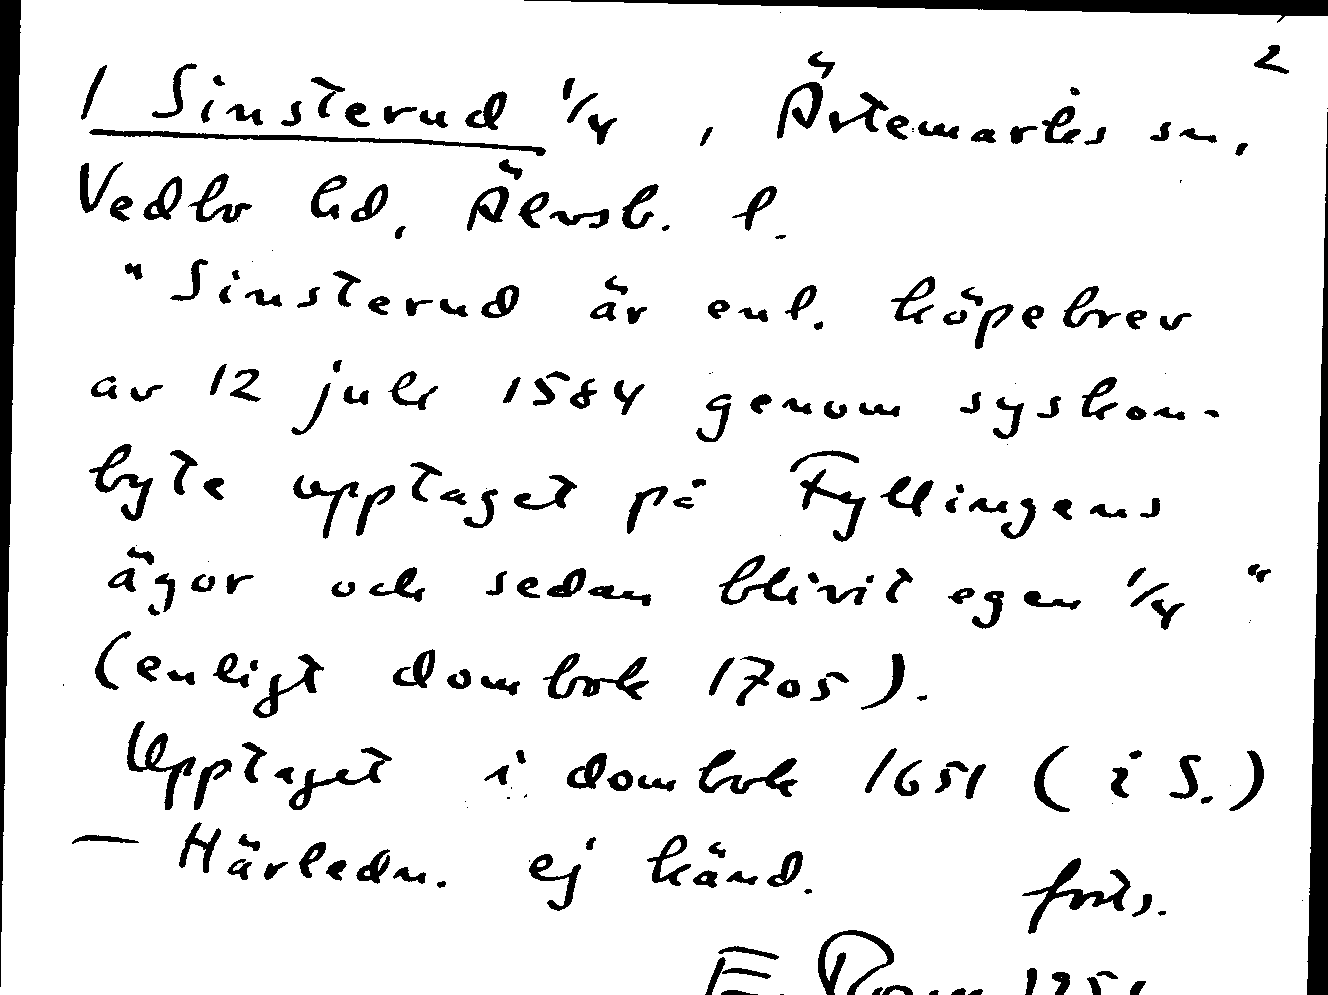 2
1 Sinsterud 1/4, Ärtemarks sn,
Vedbo hd, Älvsb. l.
"Sinsterud är enl. köpebrev
av 12 juli 1584 genom syskon-
byte upptaget på Fyllingens
ägor och sedan blivit egen 1/4"
(enligt dombok 1705).
Upptaget i dombok 1651 (i S.)
— Härledn. ej känd.
forts.
E.